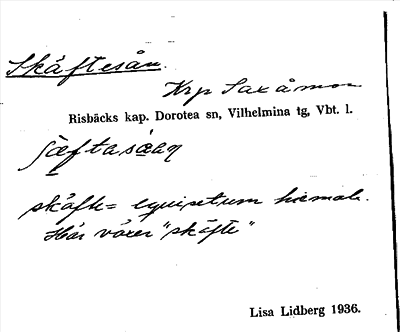 Skäftesån.
Krp Saxåmon
Risbäcks kap. Dorotea sn, Vilhelmina tg, Vbt. l.
skäfte= equisetum hiemale.
Här växer "skäfte"
Lisa Lidberg 1936.